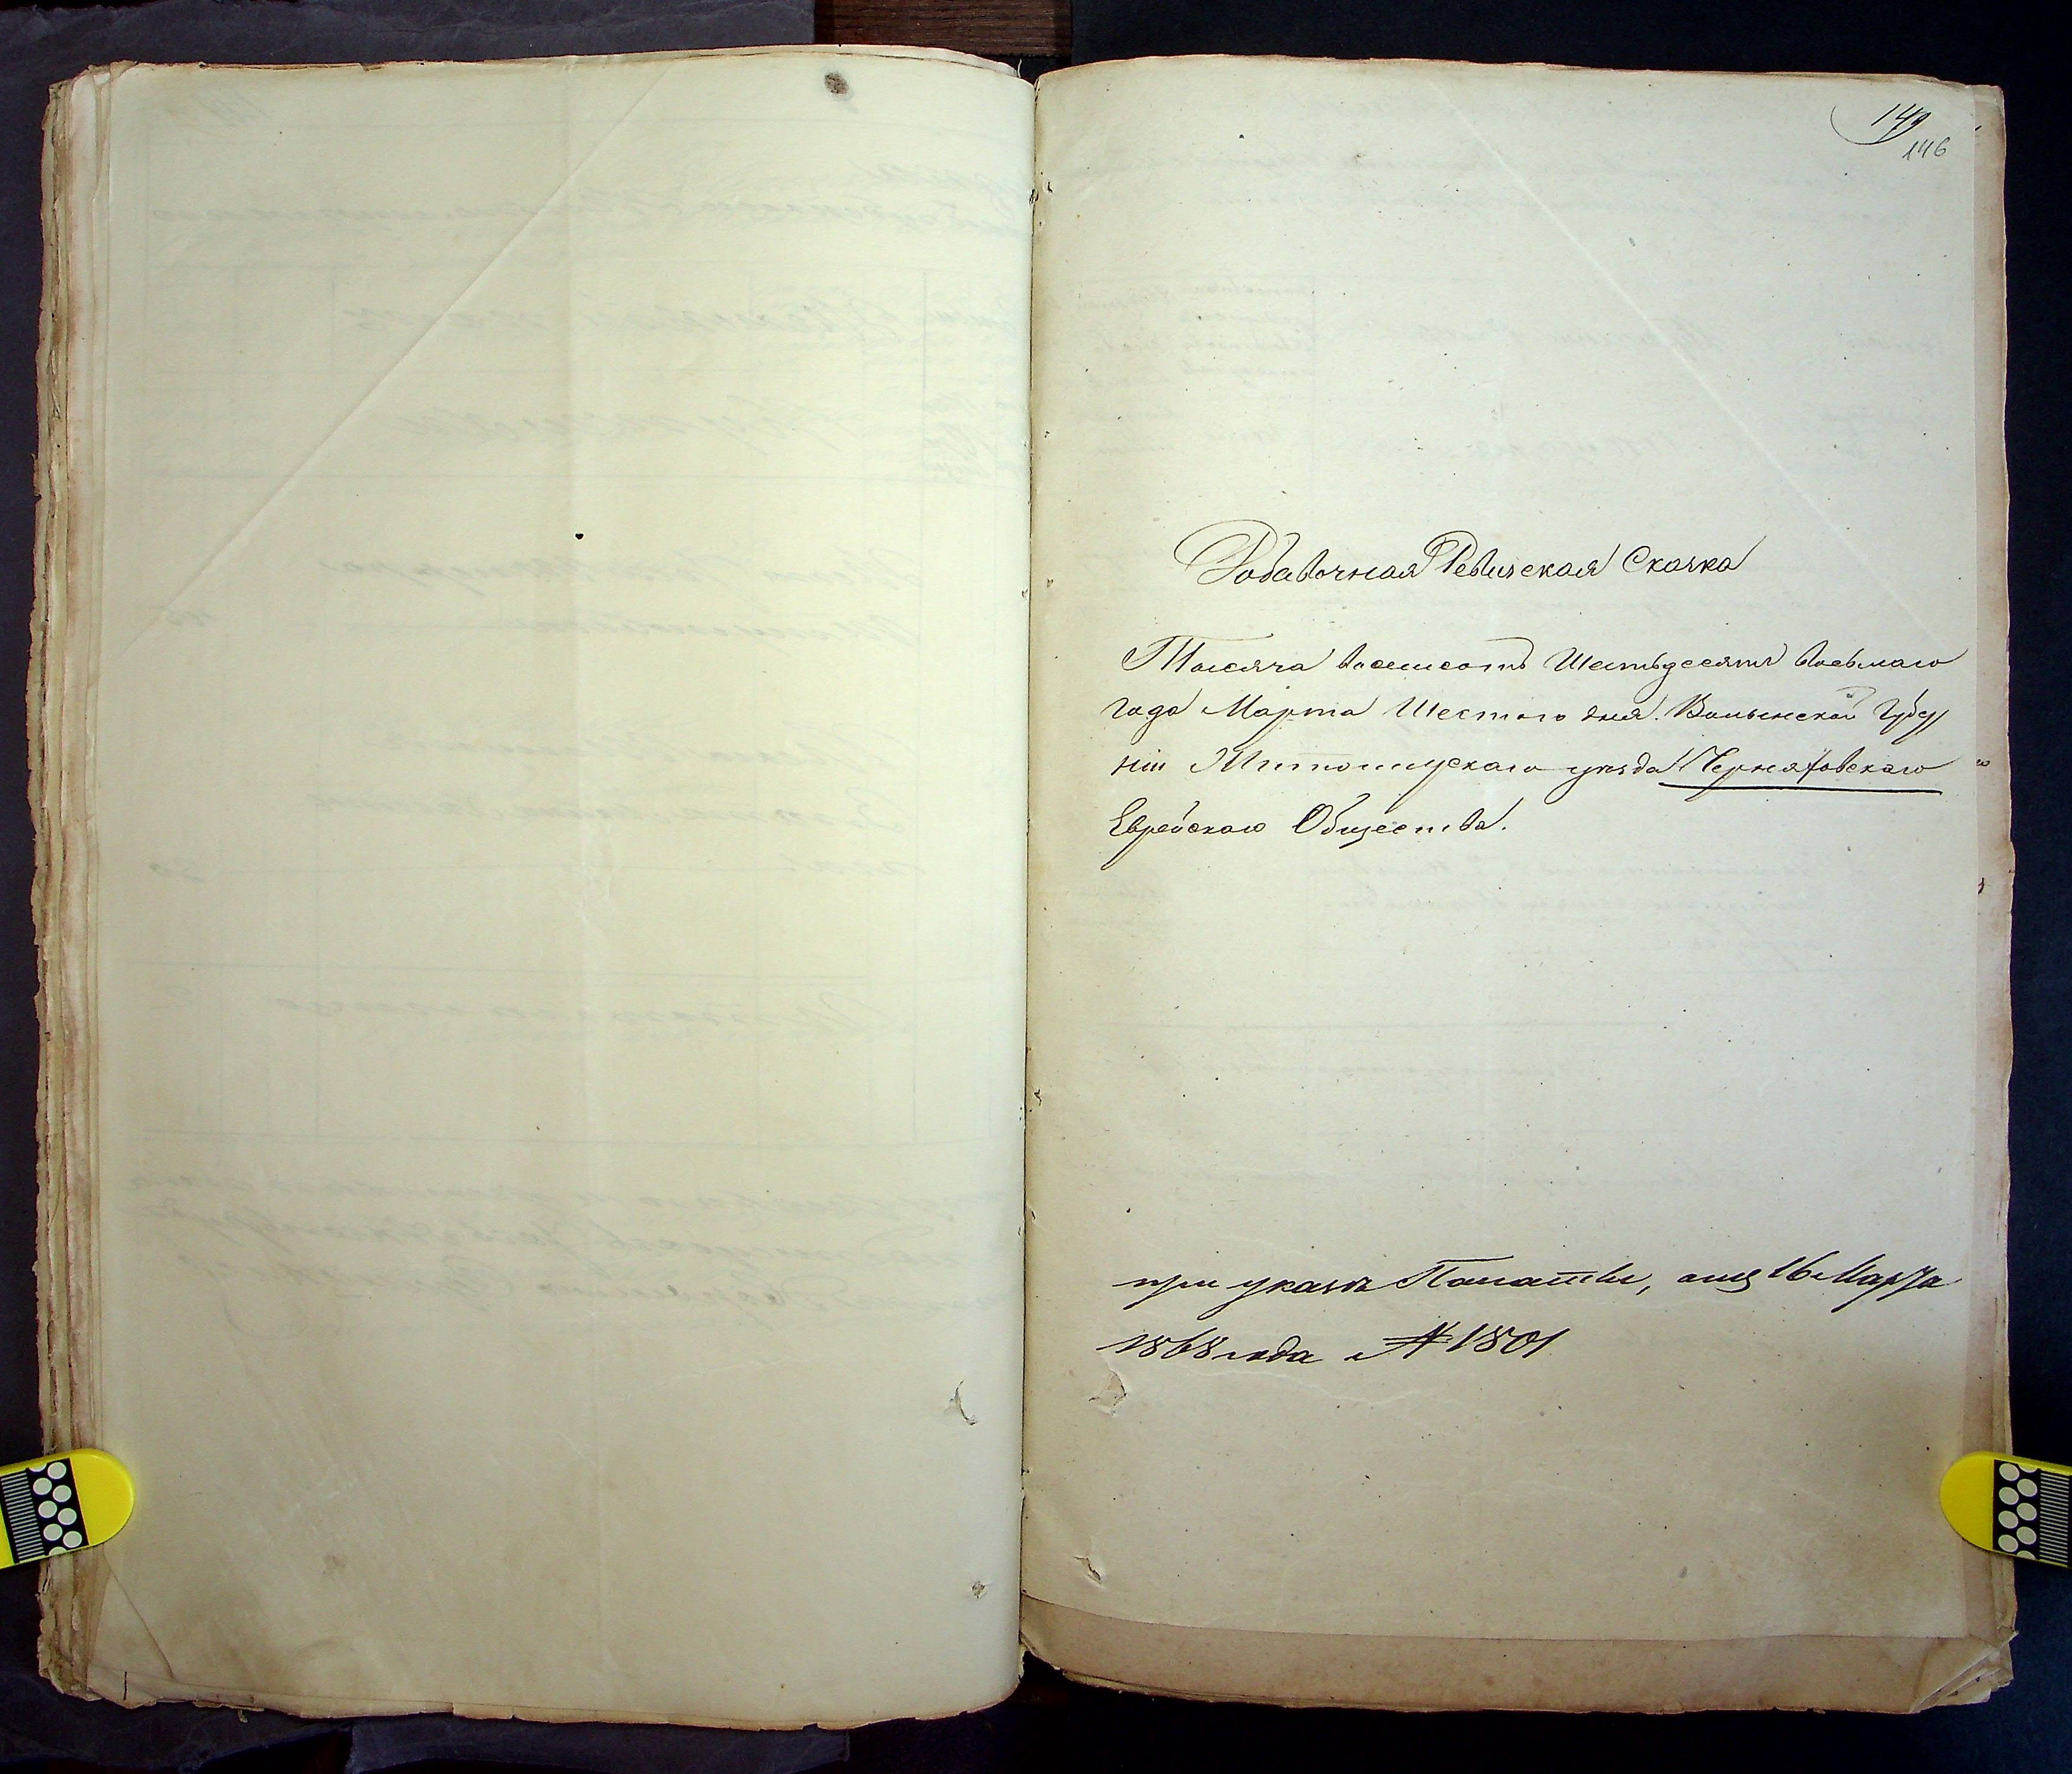 149
146
Добавочная Ревизская Сказка
Тысяча восемсотъ Шестьдесятъ восьмаго
года Марта Шестого дня. Волынской Губер
ніи Житомирскаго уѣзда Черняховскаго
Еврейскаго Общества.
при указѣ Палаты, отъ 16 Марта
1868 года № 1801